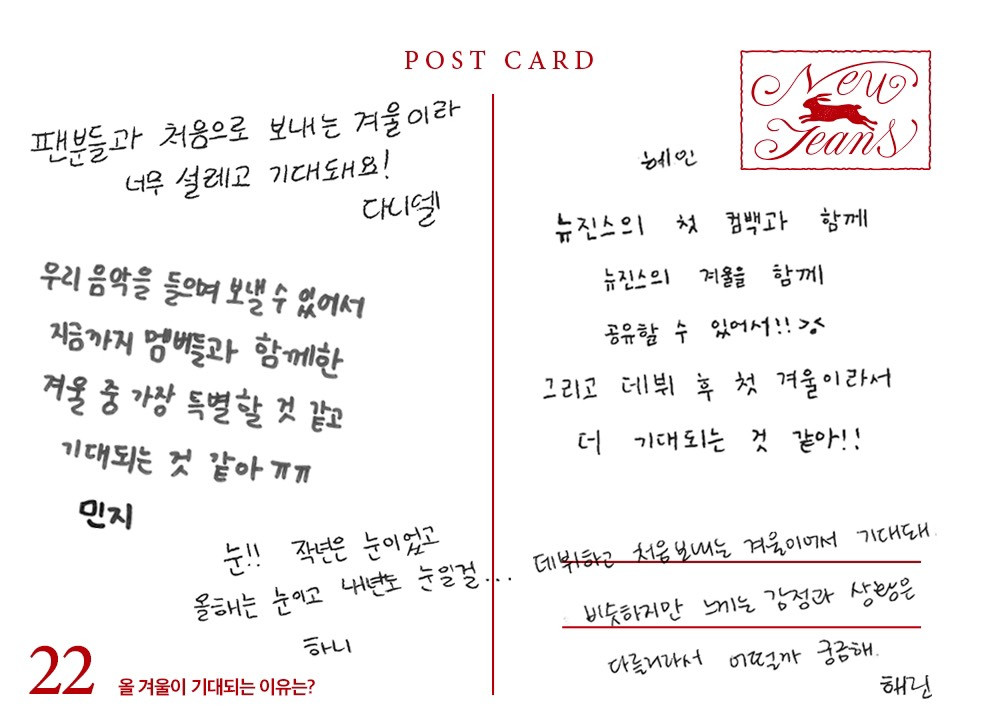 POST CARD
New
Jeans
팬분들과 처음으로 보내는 겨울이라
너무 설레고 기대돼요!
다니엘
우리 음악을 들으며 보낼 수 있어서
지금까지 멤버들과 함께한
겨울 중 가장 특별할 것 같고
기대되는 것 같아 ㅠㅠ
민지
눈!! 작년은 눈이었고
올해는 눈이고 내년도 눈일걸...
하니
22 올 겨울이 기대되는 이유는?
혜인
뉴진스의 첫 컴백과 함께
뉴진스의 겨울을 함께
공유할 수 있어서!! ><
그리고 데뷔 후 첫 겨울이라서
더 기대되는 것 같아!!
데뷔하고 처음 보내는 겨울이어서 기대돼.
비슷하지만 느끼는 감정과 상황은
다를거라서 어떨까 궁금해.
해린